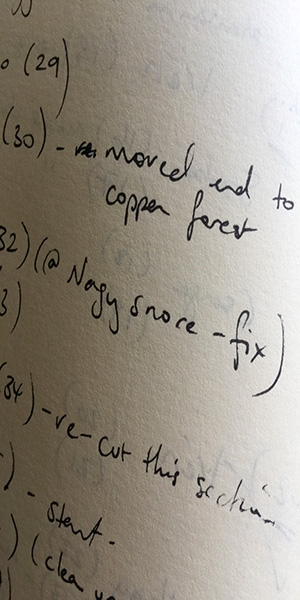 o (29)
(30) - moved end to
copper forest
32) (@ Nagy snore - fix)
3)
(34) - re-cut this section
) - start.
) (clean